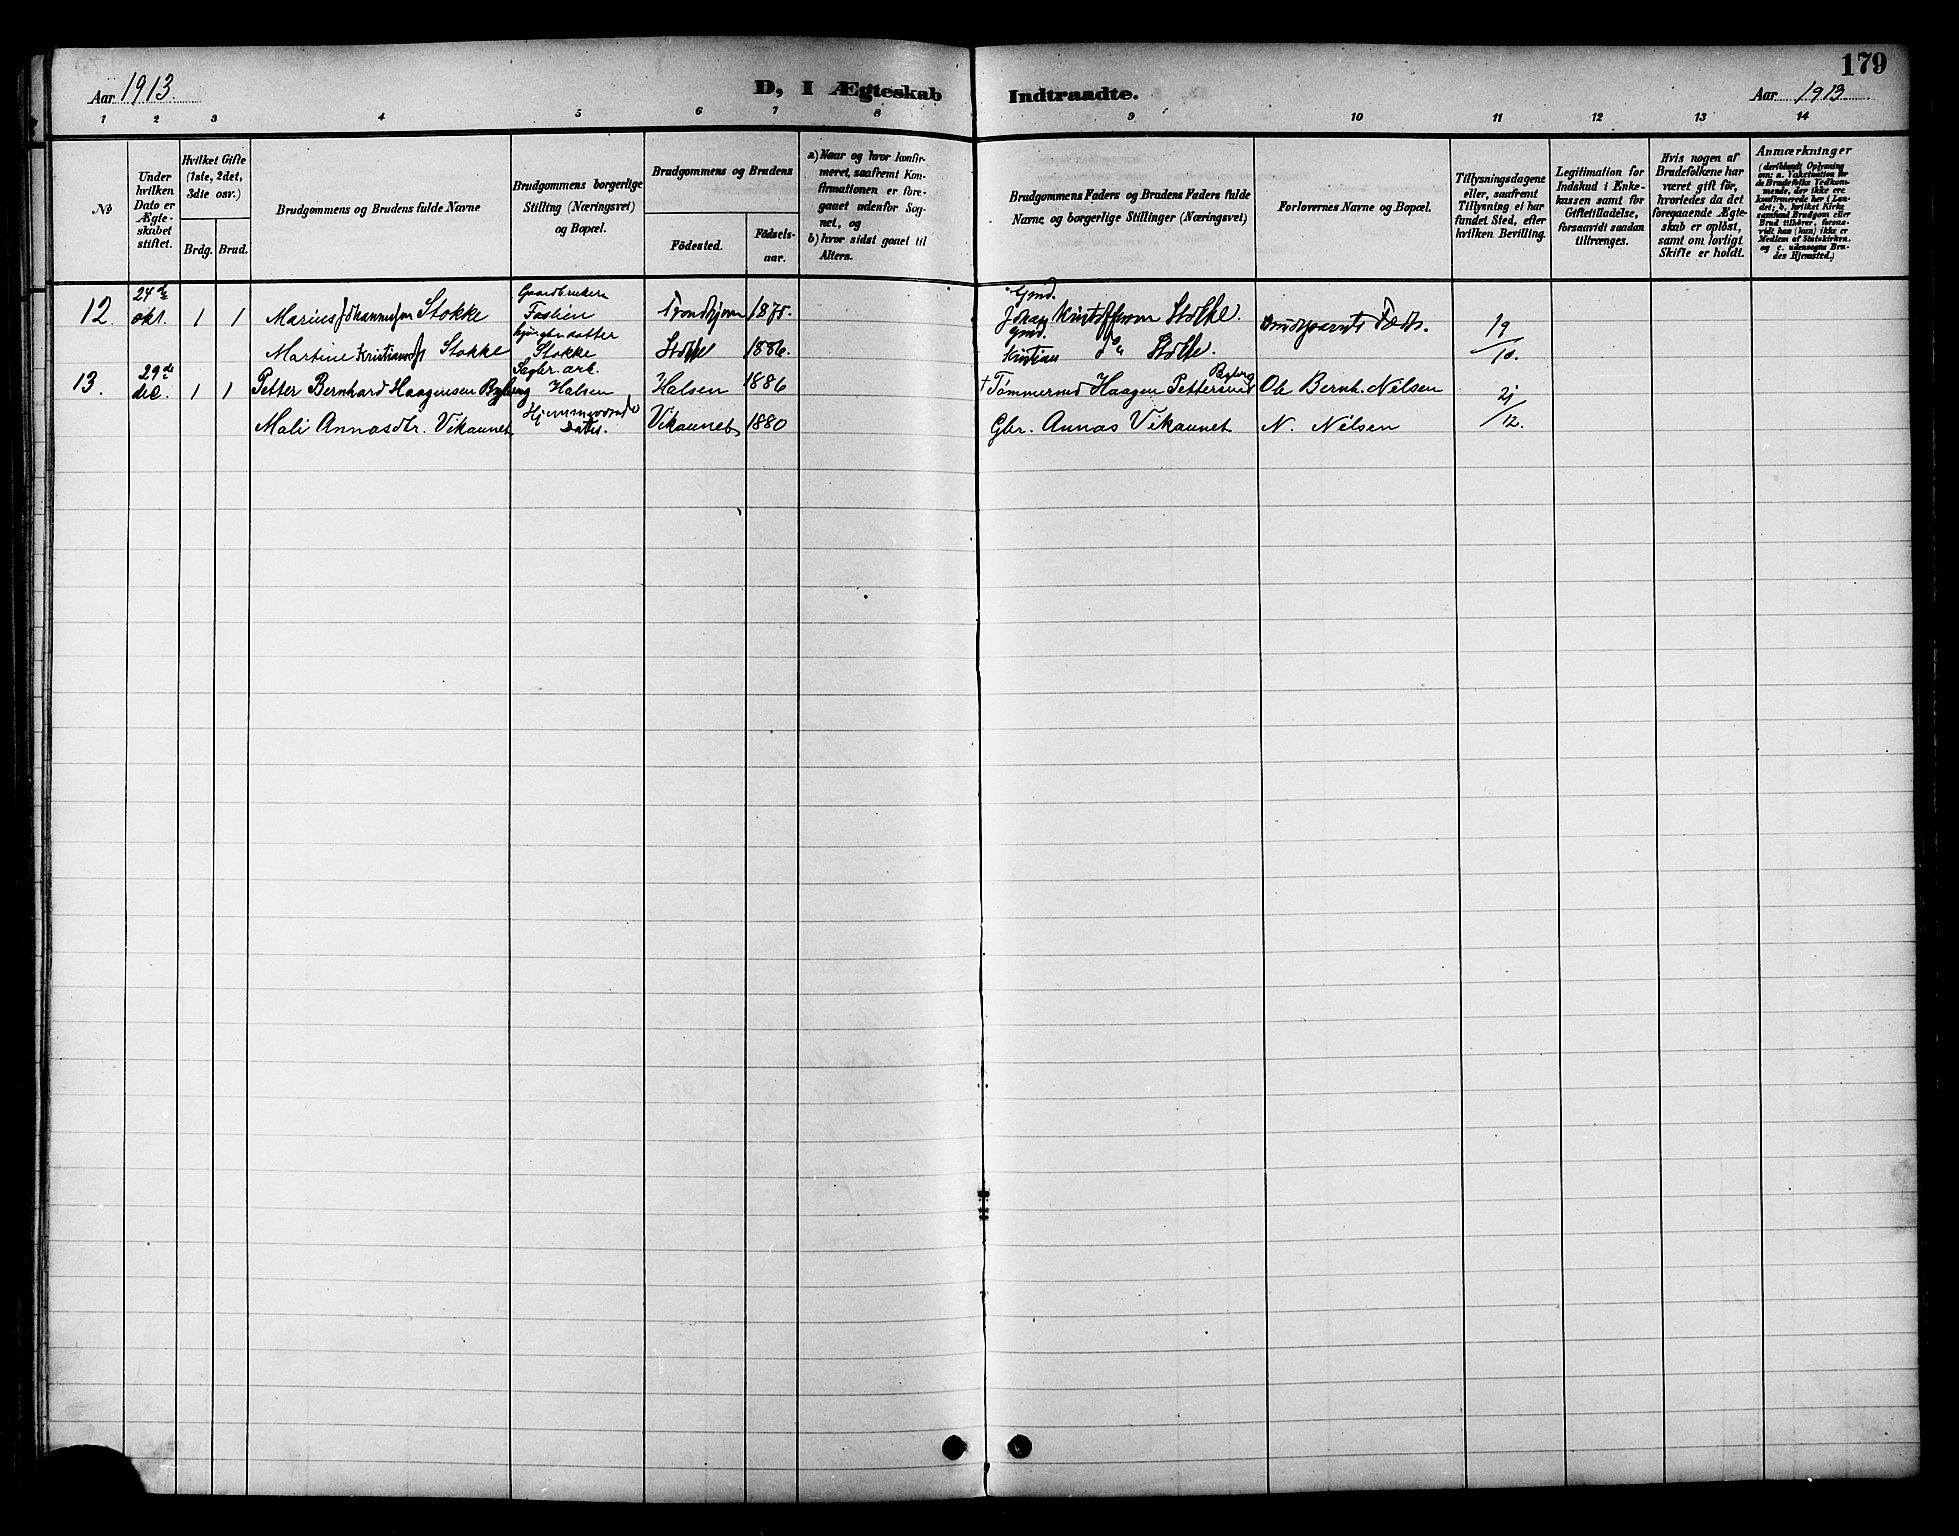 179
Aar 1913.
D, I Ægteskab Indtraadte.
Aar 1913
1 2 3 4 5 6 7 8 9 10 11 12 13 14
№
Under hvilken Dato er Ægte-skabet stiftet.
Hvilket Gifte (1ste, 2det, 3die osv.)
Brdg. Brud.
Brudgommens og Brudens fulde Navne
Brudgommens borgerlige Stilling (Næringsvei) og Bopæl.
Brudgommens og Brudens
Födested.
Födsels-aar.
a) Naar og hvor konfir-meret, saafremt Kon-firmationen er fore-gaaet udenfor Sog-net, og
b) hvor sidst gaaet til Alters.
Brudgommens Faders og Brudens Faders fulde Navne og borgerlige Stillinger (Næringsvei)
Forlovernes Navne og Bopæl.
Tillysningsdagene eller, saafremt Tillysning ei har fundet Sted, efter hvilken Bevilling.
Legitimation for Indskud i Enke-kassen samt for Giftetilladelse, forsaavidt saadan tiltrænges.
Hvis nogen af Brudefolkene har været gift før, hvorledes da det foregaaende Ægte-skab er opløst, samt om lovligt Skifte er holdt.
Anmærkninger
(deriblandt Oplysning om: a. Vakcination for de Brudefolks Vedkom-mende, der ikke ere konfirmerede her i Lan-det; b. hvilket Kirke-samfund Brudgom eller Brud tilhører, forsaa-vidt han (hun) ikke er Medlem af Statskirken, og c. udensogns Bru-des Hjemsted.)
12. 24de okt. 1 1 Marius Johannessen Stokke Gaardbruker Foslien Trondhjem 1875. Gmd. Johan Kristoffersen Stokke. 19/10.
Martine Kristiansdt Stokke datter Stokke Stokke 1886. Gmd. Kristian do Stokke.
13. 29de dec. 1 1 Petter Bernhard Haagensen Byberg Sagbr. arb. Halsen Halsen 1886 † Tømmermd Haagen Pettersen Byberg Ole Bernh. Nilsen 21/12.
Mali Annasdtr. Vikaunet Hjemmeværende Datter. Vikaunet 1880 Gbr. Annas Vikaunet N. Nilsen